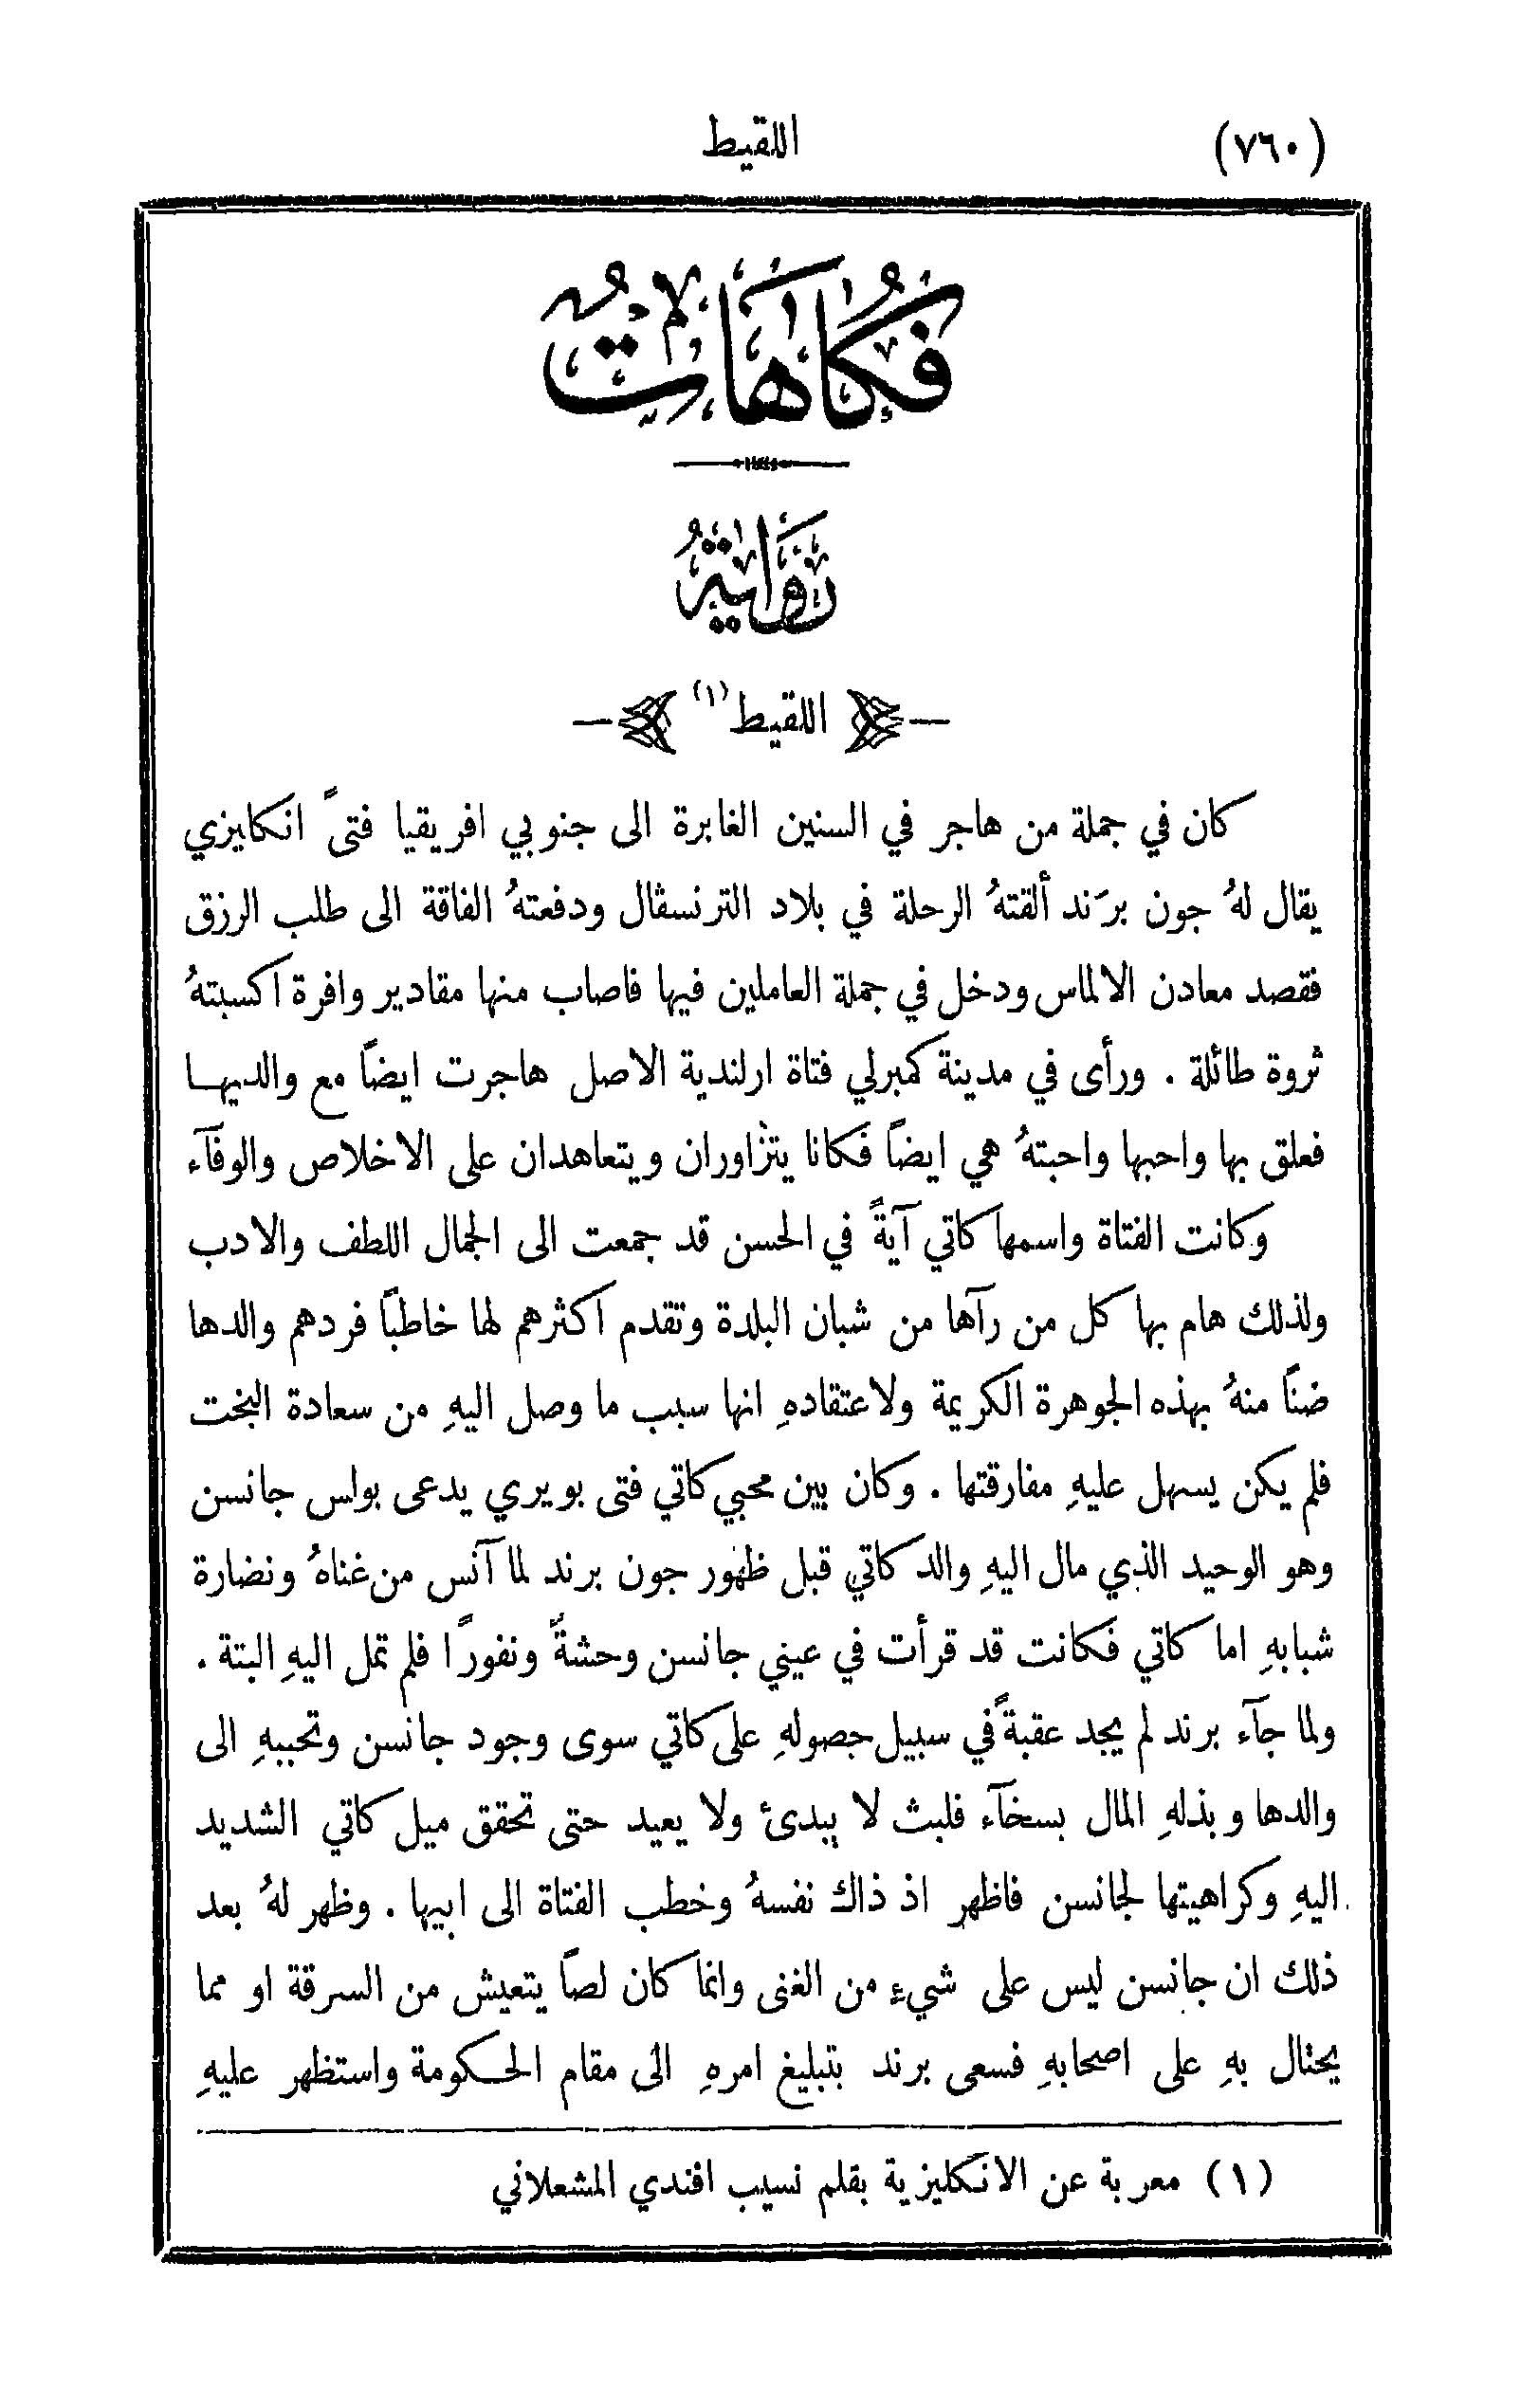 (٧٦٠) اللقيط
فُكَاهَاتٌ
رِوَايَةُ
اللقيط (١)
كان في جملة من هاجر في السنين الغابرة الى جنوبي افريقيا فتىً انكليزي
يقال لهُ جون برَند ألقتهُ الرحلة في بلاد الترنسڤال ودفعتهُ الفاقة الى طلب الرزق
فقصد معادن الالماس ودخل في جملة العاملين فيها فاصاب منها مقادير وافرة اكسبتهُ
ثروة طائلة . ورأى في مدينة كمبرلي فتاة ارلندية الاصل هاجرت ايضًا مع والديها
فعلق بها واحبها واحبتهُ هي ايضًا فكانا يتزاوران ويتعاهدان على الاخلاص والوفآء
وكانت الفتاة واسمها كاتي آيةً في الحسن قد جمعت الى الجمال اللطف والادب
ولذلك هام بها كل من رآها من شبان البلدة وتقدم اكثرهم لها خاطبًا فردهم والدها
ضنًا منهُ بهذه الجوهرة الكريمة ولاعتقادهِ انها سبب ما وصل اليهِ من سعادة البخت
فلم يكن يسهل عليهِ مفارقتها . وكان بين محبي كاتي فتى بويري يدعى بولس جانسن
وهو الوحيد الذي مال اليهِ والد كاتي قبل ظهور جون برند لما آنس من غناهُ ونضارة
شبابهِ اما كاتي فكانت قد قرأت في عيني جانسن وحشةً ونفورًا فلم تمل اليهِ البتة .
ولما جآء برند لم يجد عقبةً في سبيل حصولهِ على كاتي سوى وجود جانسن وتحببهِ الى
والدها وبذلهِ المال بسخآء فلبث لا يبدئ ولا يعيد حتى تحقق ميل كاتي الشديد
اليهِ وكراهيتها لجانسن فاظهر اذ ذاك نفسهُ وخطب الفتاة الى ابيها . وظهر لهُ بعد
ذلك ان جانسن ليس على شيءٍ من الغنى وانما كان لصًا يتعيش من السرقة او مما
يحتال بهِ على اصحابهِ فسعى برند بتبليغ امرهِ الى مقام الحكومة واستظهر عليهِ
(١) معربة عن الانكليزية بقلم نسيب افندي المشعلاني